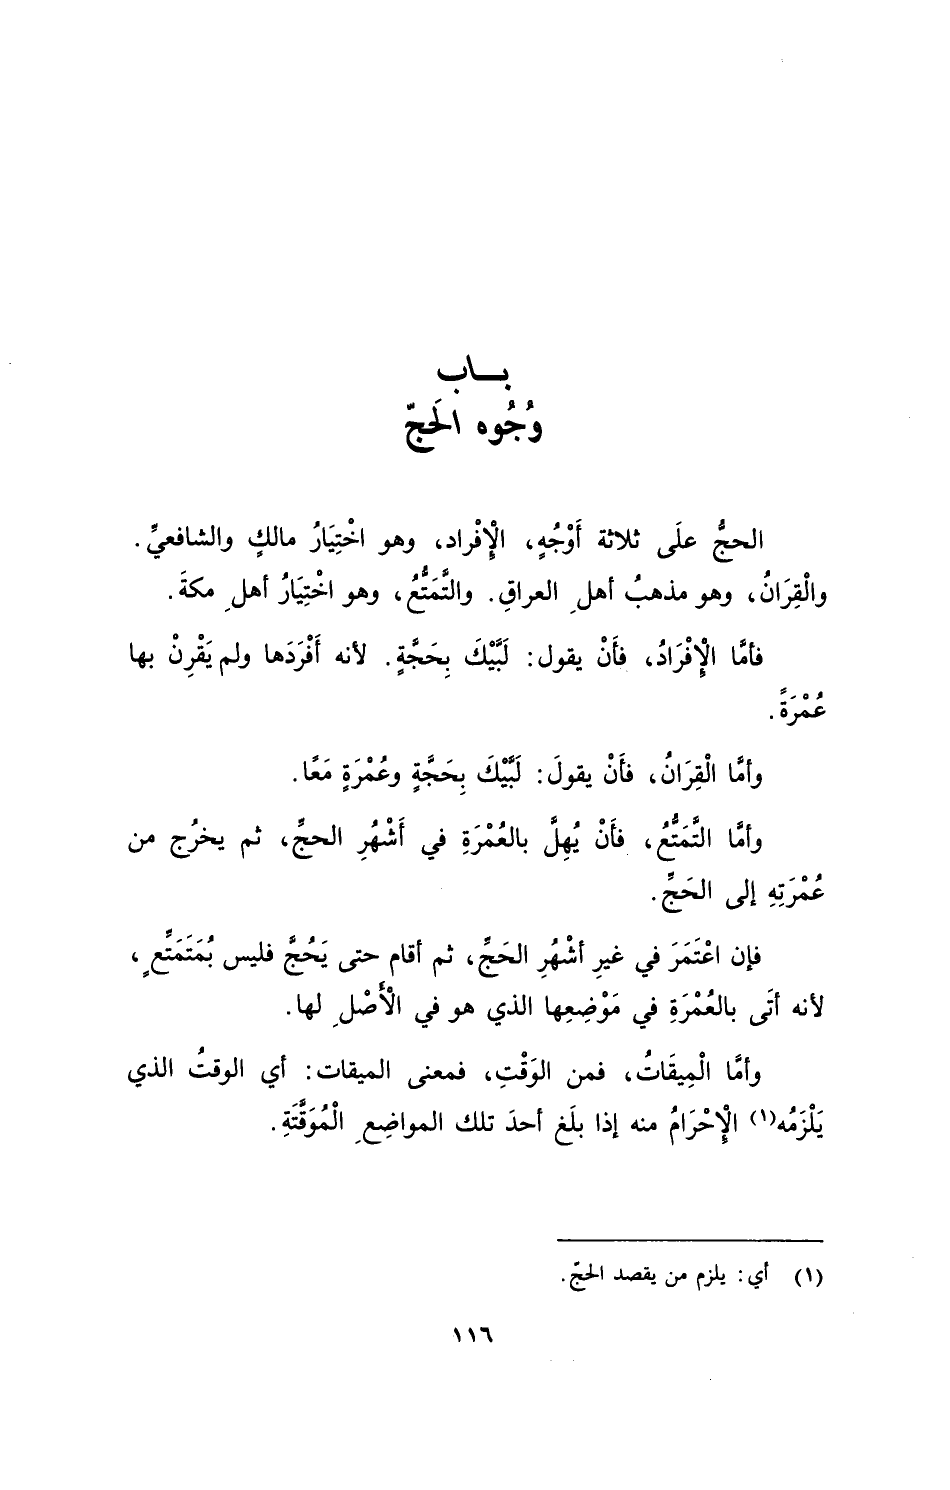 بـــاب
وُجُوه الحَجّ
الحجُّ علَى ثلاثة أَوْجُهٍ، الْإِفْراد، وهو اخْتِيَارُ مالكٍ والشافعيِّ.
والْقِرَانُ، وهو مذهبُ أهلِ العراقِ. والتَّمَتُّعُ، وهو اخْتِيَارُ أهلِ مكةَ.
فأمَّا الْإِفْرَادُ، فأَنْ يقول: لَبَّيْكَ بِحَجَّةٍ. لأنه أَفْرَدَها ولم يَقْرِنْ بها
عُمْرَةً.
وأمَّا الْقِرَانُ، فأَنْ يقولَ: لَبَّيْكَ بِحَجَّةٍ وعُمْرَةٍ مَعًا.
وأمَّا التَّمَتُّعُ، فأَنْ يُهِلَّ بالعُمْرَةِ في أَشْهُرِ الحجِّ، ثم يخرُج من
عُمْرَتِهِ إلى الحَجِّ.
فإن اعْتَمَرَ في غيرِ أشْهُرِ الحَجِّ، ثم أقام حتى يَحُجَّ فليس بُمَتَمَتِّعٍ،
لأنه أتَى بالعُمْرَةِ في مَوْضِعِها الذي هو في الْأَصْلِ لها.
وأمَّا الْمِيقَاتُ، فمن الوَقْتِ، فمعنى الميقات: أي الوقتُ الذي
يَلْزَمُه(١) الْإِحْرَامُ منه إذا بلَغ أحدَ تلك المواضِعِ الْمُوَقَّتَةِ.
(١) أي: يلزم من يقصد الحجّ.
١١٦